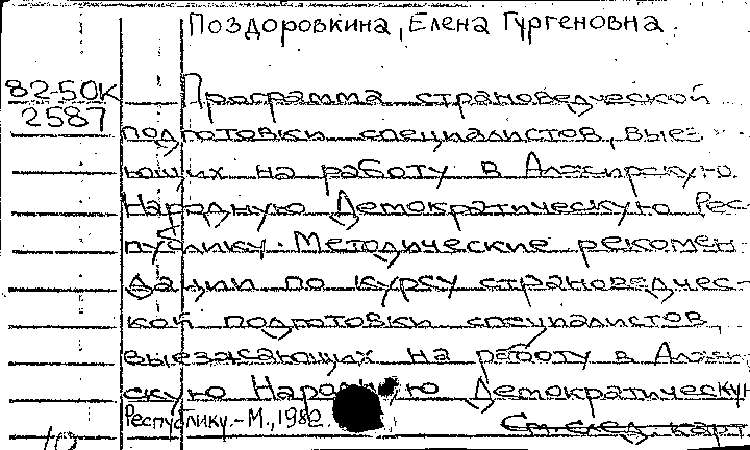 Поздоровкина, Елена Гургеновна.
82-50К
2587
Программа страноведческой
подготовки специалистов, выез
ющих на работу в Алжирскую
Народную Демократическую Рес-
публику. Методические рекомен-
дации по курсу страноведчес-
кой подготовки специалистов,
выезжающих на работу в Алжир
скую Народную Демократическую
Республику.-М., 1982.
См. след. карт.
10